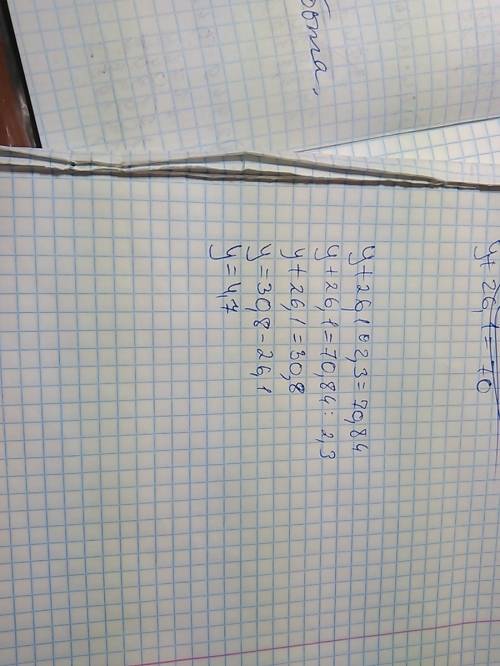 бота,
y + 26,1 = 70
y + 26,1 • 2,3 = 70,84
y + 26,1 = 70,84 : 2,3
y + 26,1 = 30,8
y = 30,8 - 26,1
y = 4,7